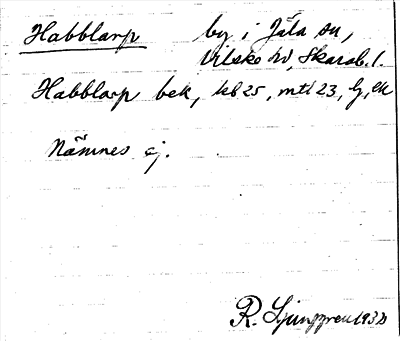 Habblarp by i Jäla sn,
Vilske hd, Skarab. l.
Habblarp bek, kb 25, mtl 23, lj, ek
Nämnes ej.
R. Ljunggren 193